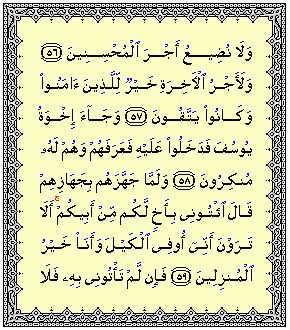 وَلَا نُضِيعُ أَجْرَ الْمُحْسِنِينَ ﴿٥٦﴾
وَلَأَجْرُ الْآخِرَةِ خَيْرٌ لِّلَّذِينَ ءَامَنُوا
وَكَانُوا يَتَّقُونَ ﴿٥٧﴾ وَجَآءَ إِخْوَةُ
يُوسُفَ فَدَخَلُوا عَلَيْهِ فَعَرَفَهُمْ وَهُمْ لَهُۥ
مُنكِرُونَ ﴿٥٨﴾ وَلَمَّا جَهَّزَهُم بِجَهَازِهِمْ
قَالَ ٱئْتُونِى بِأَخٍ لَّكُم مِّنْ أَبِيكُمْ ۚ أَلَا
تَرَوْنَ أَنِّىٓ أُوفِى الْكَيْلَ وَأَنَا۠ خَيْرُ
الْمُنزِلِينَ ﴿٥٩﴾ فَإِن لَّمْ تَأْتُونِى بِهِۦ فَلَا